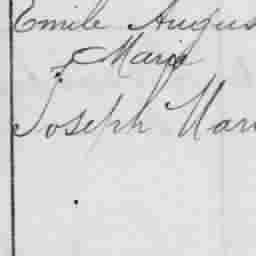 Emile Augus
& Marie
Joseph Mari